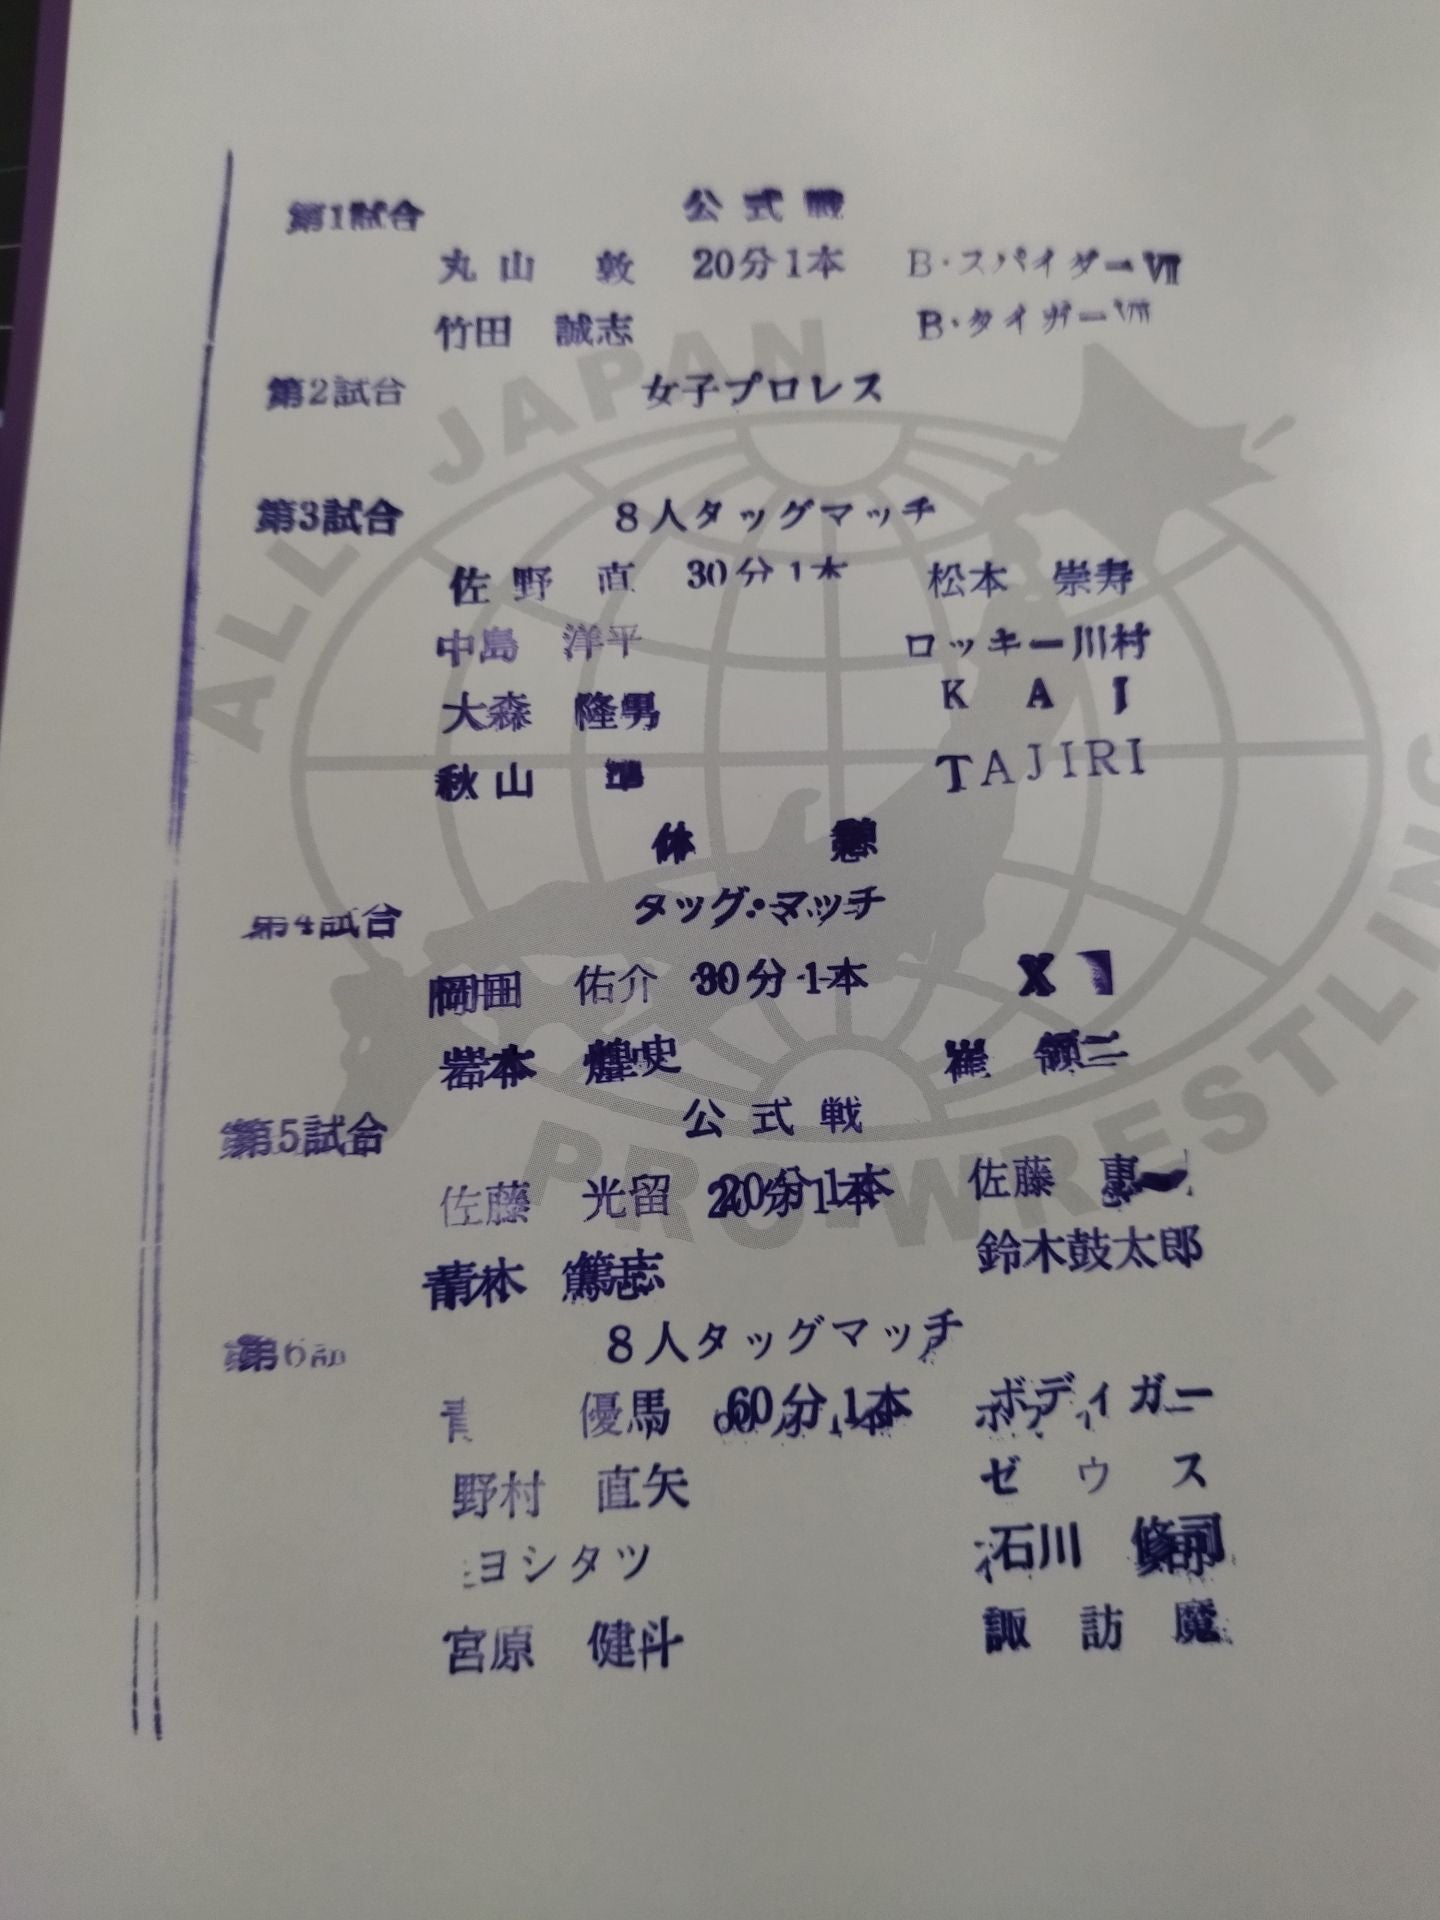 第1試合 公式戦
丸山 敦 20分1本 B・スパイダーⅦ
竹田 誠志 B・タイガーⅦ
第2試合 女子プロレス
第3試合 8人タッグマッチ
佐野 直 30分1本 松本 崇寿
中島 洋平 ロッキー川村
大森 隆男 KAI
秋山 準 TAJIRI
休憩
第4試合 タッグ・マッチ
岡田 佑介 30分1本
岩本 煌史 崔 領二
第5試合 公式戦
佐藤 光留 20分1本 佐藤 恵一
青木 篤志 鈴木鼓太郎
第6 8人タッグマッチ
優馬 60分1本 ボディガー
野村 直矢 ゼウス
ヨシタツ 石川 修司
宮原 健斗 諏訪魔
ALL JAPAN PRO-WRESTLING